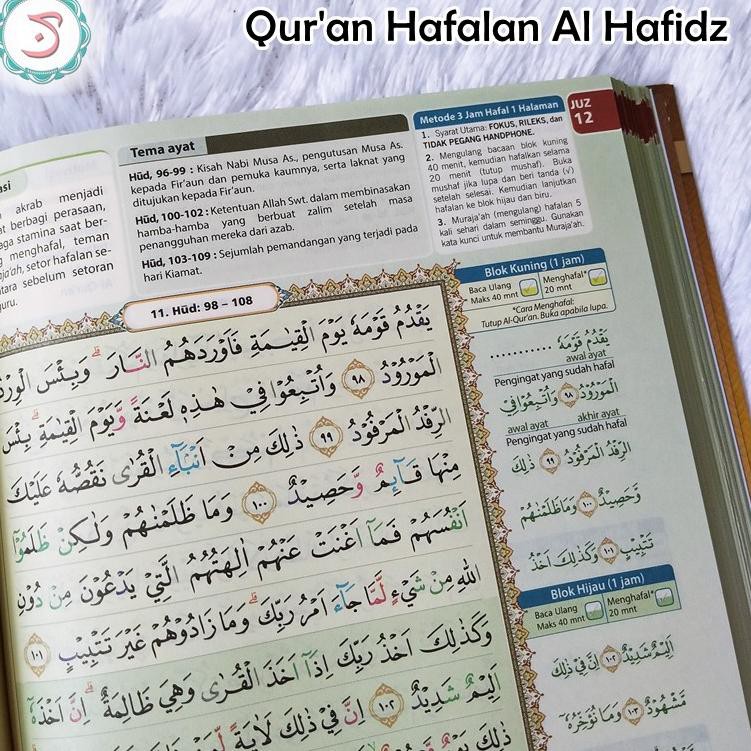 Qur'an Hafalan Al Hafidz
akrab menjadi
berbagi perasaan,
stamina saat ber-
menghafal, teman
setor hafalan se-
sebelum setoran
guru.
Tema ayat
Hūd, 96-99 : Kisah Nabi Musa As., pengutusan Musa As.
kepada Fir'aun dan pemuka kaumnya, serta laknat yang
ditujukan kepada Fir'aun.
Hūd, 100-102 : Ketentuan Allah Swt. dalam membinasakan
hamba-hamba yang berbuat zalim setelah masa
penangguhan mereka dari azab.
Hūd, 103-109 : Sejumlah pemandangan yang terjadi pada
hari Kiamat.
Metode 3 Jam Hafal 1 Halaman
1. Syarat Utama: FOKUS, RILEKS, dan
TIDAK PEGANG HANDPHONE.
2. Mengulang bacaan blok kuning
40 menit, kemudian hafalkan selama
20 menit (tutup mushaf). Buka
mushaf jika lupa dan beri tanda (√)
setelah selesai. Kemudian lanjutkan
hafalan ke blok hijau dan biru.
3. Muraja'ah (mengulang) hafalan 5
kali sehari dalam seminggu. Gunakan
kata kunci untuk membantu Muraja'ah.
JUZ
12
11. Hūd: 98 – 108
يَقْدُمُ قَوْمَهٗ يَوْمَ الْقِيٰمَةِ فَاَوْرَدَهُمُ النَّارَ ۗ وَبِئْسَ الْوِرْدُ
الْمَوْرُوْدُ ٩٨ وَاُتْبِعُوْا فِيْ هٰذِهٖ لَعْنَةً وَّيَوْمَ الْقِيٰمَةِ ۗ بِئْسَ
الرِّفْدُ الْمَرْفُوْدُ ٩٩ ذٰلِكَ مِنْ اَنْۢبَاۤءِ الْقُرٰى نَقُصُّهٗ عَلَيْكَ
مِنْهَا قَاۤىِٕمٌ وَّحَصِيْدٌ ١٠٠ وَمَا ظَلَمْنٰهُمْ وَلٰكِنْ ظَلَمُوْٓا
اَنْفُسَهُمْ فَمَآ اَغْنَتْ عَنْهُمْ اٰلِهَتُهُمُ الَّتِيْ يَدْعُوْنَ مِنْ دُوْنِ
اللّٰهِ مِنْ شَيْءٍ لَّمَّا جَاۤءَ اَمْرُ رَبِّكَ ۗ وَمَا زَادُوْهُمْ غَيْرَ تَتْبِيْبٍ ١٠١
وَكَذٰلِكَ اَخْذُ رَبِّكَ اِذَآ اَخَذَ الْقُرٰى وَهِيَ ظَالِمَةٌ ۗ اِنَّ اَخْذَهٗٓ
اَلِيْمٌ شَدِيْدٌ ١٠٢ اِنَّ فِيْ ذٰلِكَ لَاٰيَةً
Blok Kuning (1 jam)
Baca Ulang Maks 40 mnt
Menghafal* 20 mnt
*Cara Menghafal:
Tutup Al-Qur'an. Buka apabila lupa.
يَقْدُمُ قَوْمَهٗ ............
awal ayat
Pengingat yang sudah hafal
الْمَوْرُوْدُ ٩٨ وَاُتْبِعُوْا فِيْ
awal ayat akhir ayat
Pengingat yang sudah hafal
الرِّفْدُ الْمَرْفُوْدُ ٩٩ ذٰلِكَ
وَّحَصِيْدٌ ١٠٠ وَمَا ظَلَمْنٰهُمْ
تَتْبِيْبٍ ١٠١ وَكَذٰلِكَ اَخْذُ
Blok Hijau (1 jam)
Baca Ulang Maks 40 mnt
Menghafal* 20 mnt
اَلِيْمٌ شَدِيْدٌ ١٠٢ اِنَّ فِيْ ذٰلِكَ
مَّشْهُوْدٌ ١٠٣ وَمَا نُؤَخِّرُهٗٓ